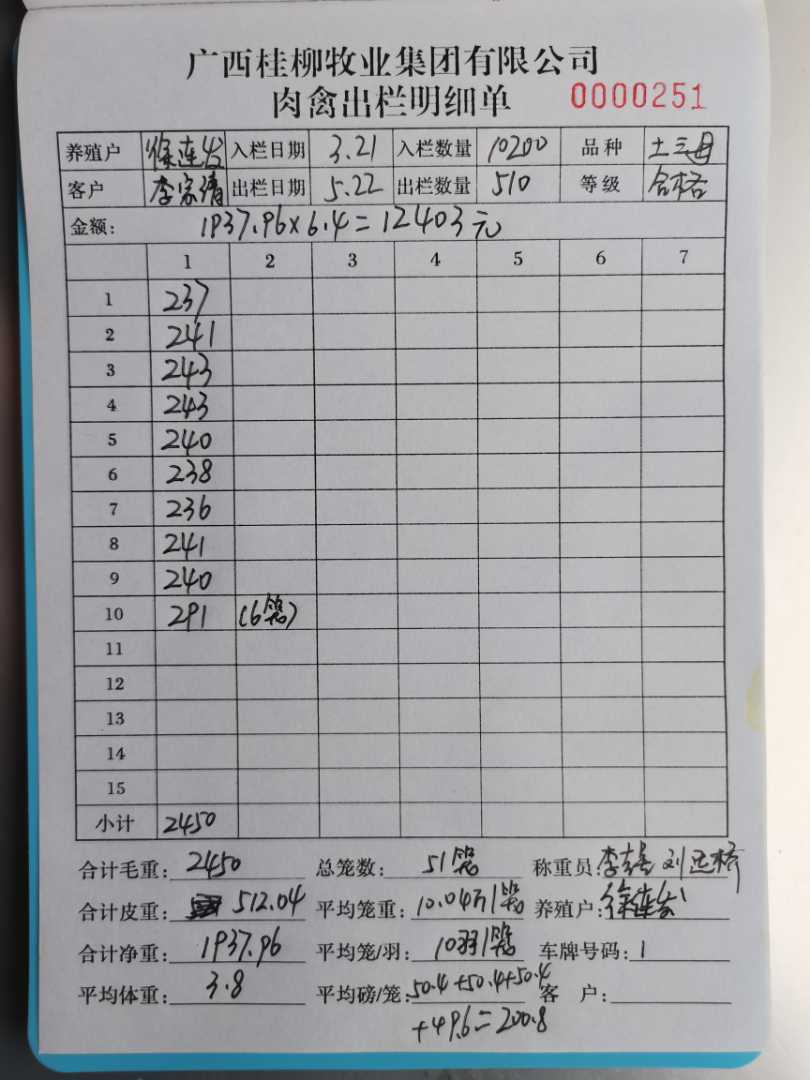 广西桂柳牧业集团有限公司
肉禽出栏明细单 0000251
养殖户 徐连发 入栏日期 3.21 入栏数量 10200 品种 土三月
客户 李宗清 出栏日期 5.22 出栏数量 510 等级 合格
金额: 1937.96×6.4=12403元
1 2 3 4 5 6 7
1 237
2 241
3 243
4 243
5 240
6 238
7 236
8 241
9 240
10 291 (6笼)
11
12
13
14
15
小计 2450
合计毛重: 2450 总笼数: 51笼 称重员:
合计皮重: 512.04 平均笼重: 10.04斤/笼 养殖户: 徐连发
合计净重: 1937.96 平均笼/羽: 10羽/笼 车牌号码: 1
平均体重: 3.8 平均磅/笼: 50.4+50.4+50.4 客 户:
+49.6=200.8